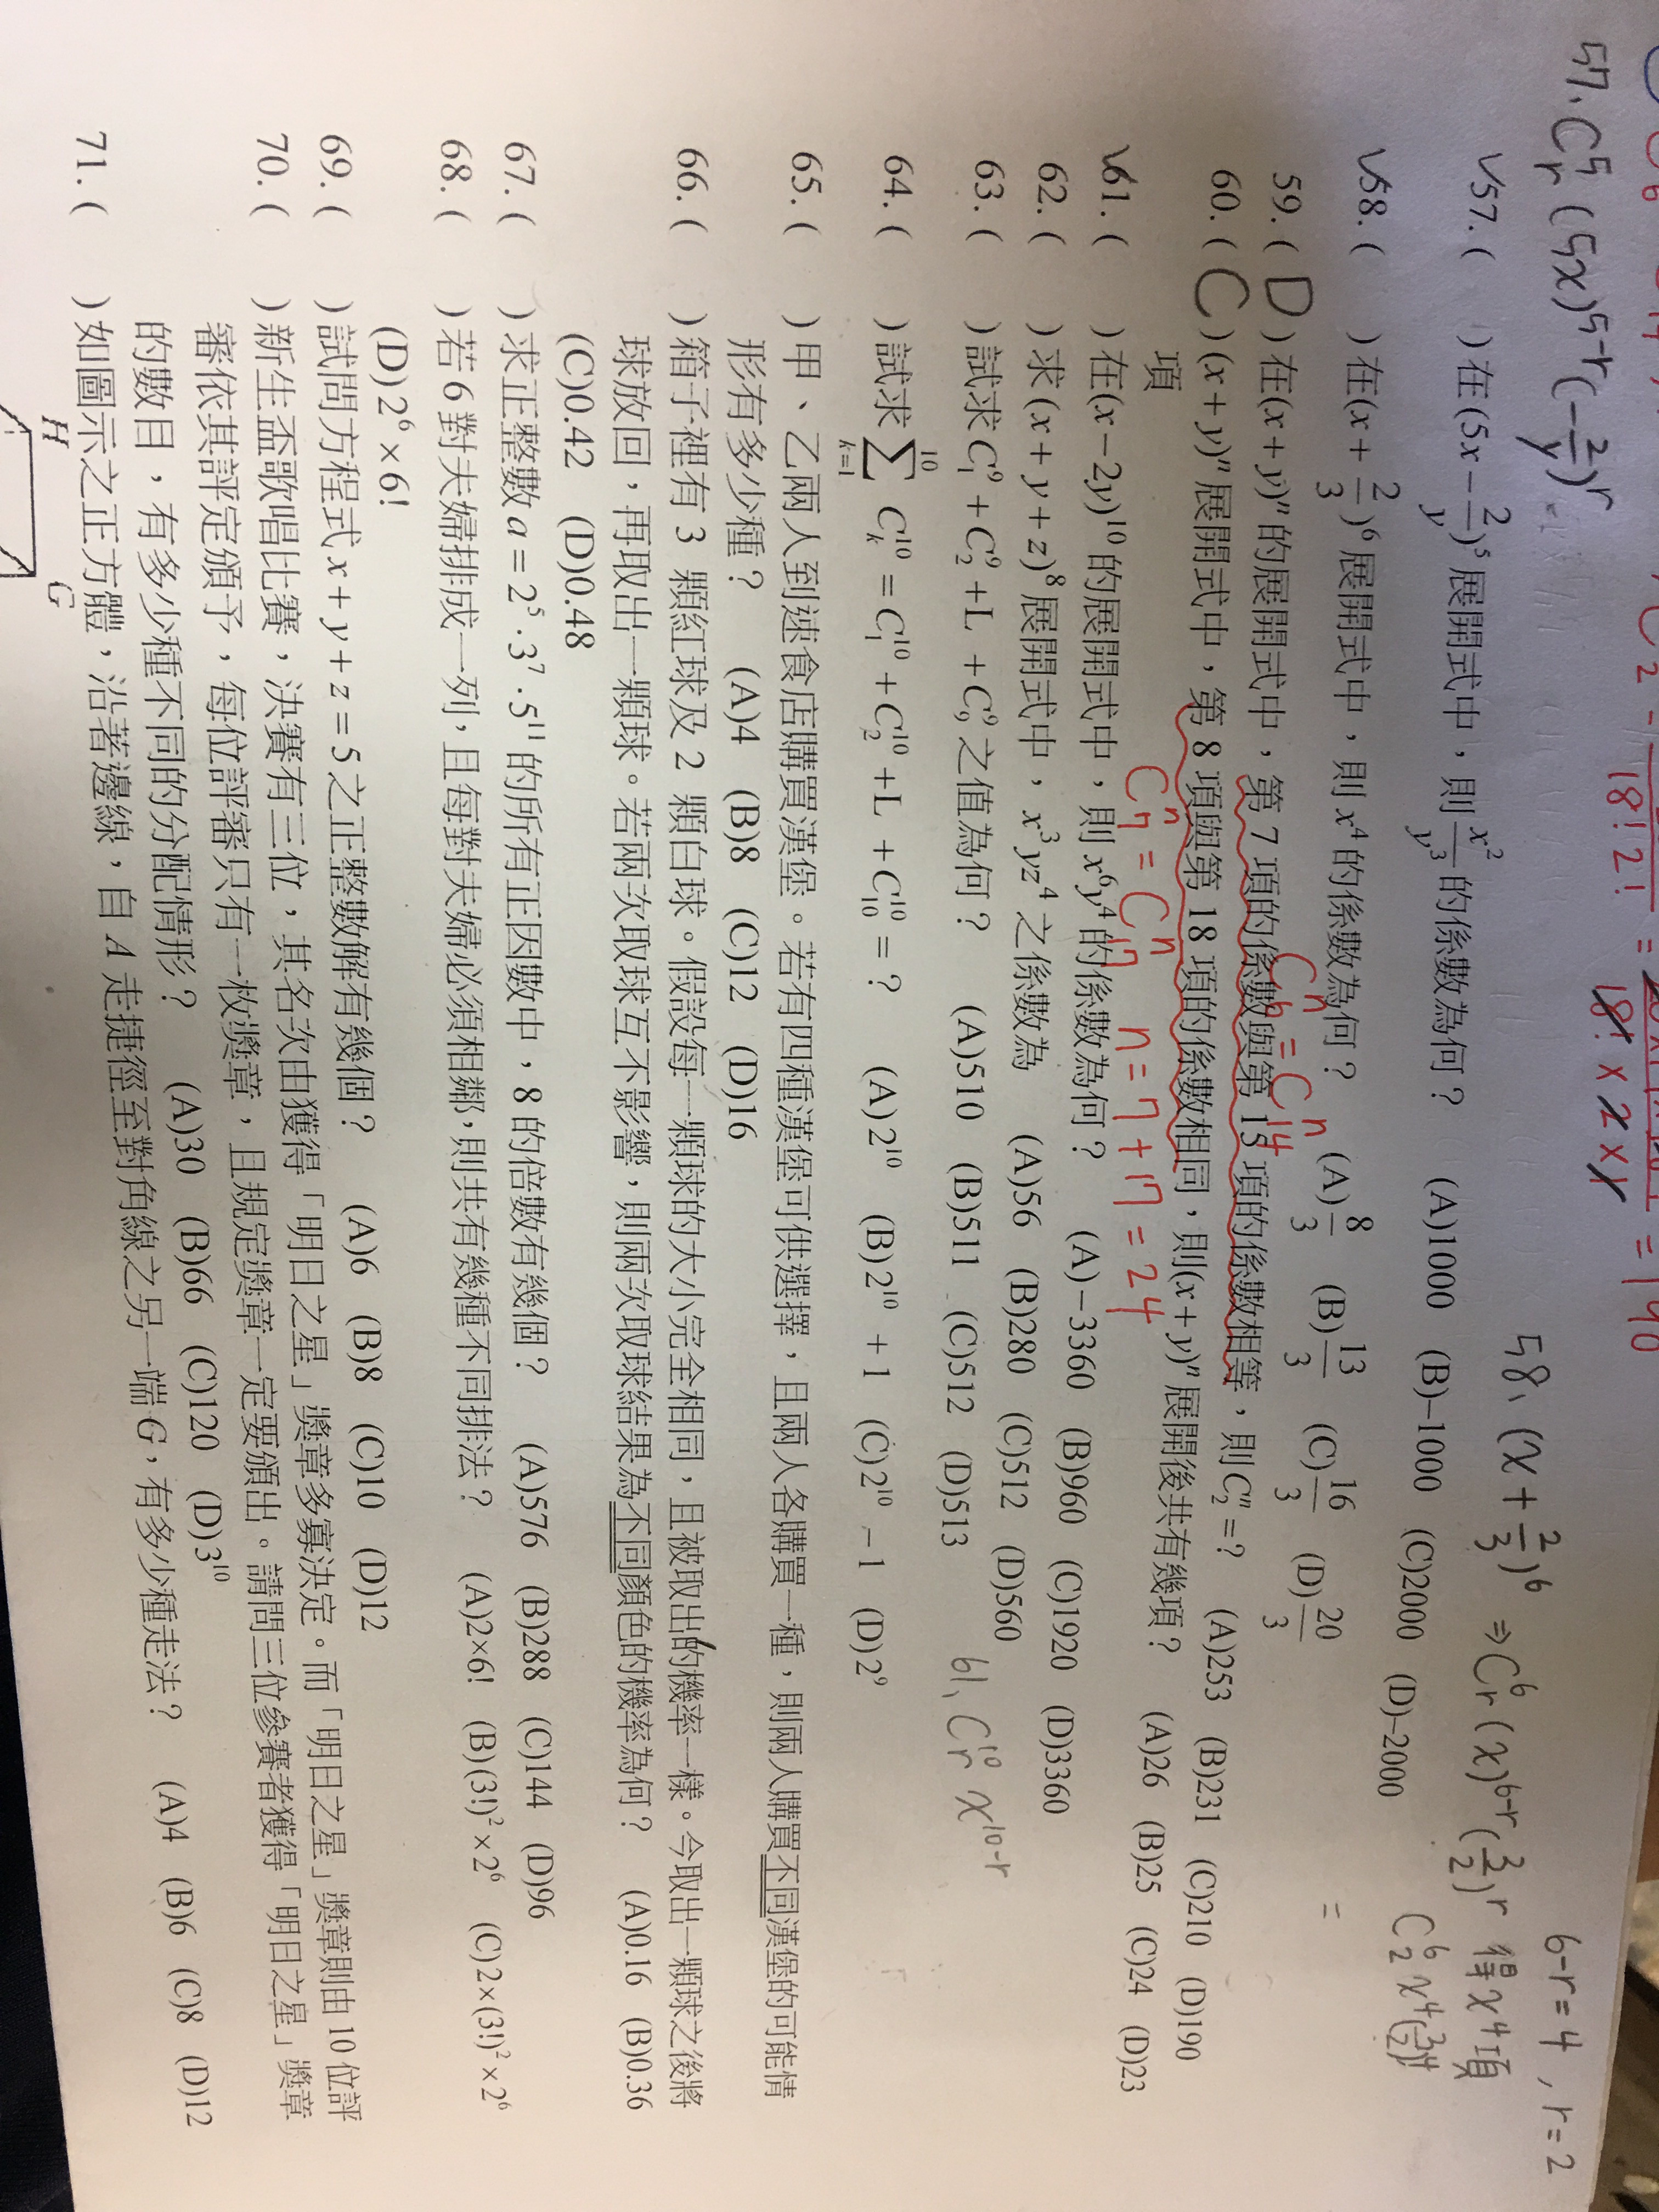 18!2! = 18!×2×1 = 190
57、C⁵ᵣ(5x)⁵⁻ʳ(-2/y)ʳ
58、(x+2/3)⁶ ⇒ C⁶ᵣ(x)⁶⁻ʳ(3/2)ʳ 得x⁴項
6-r=4, r=2
✓57. ( ) 在(5x-2/y)⁵展開式中,則x²/y³的係數為何? (A)1000 (B)-1000 (C)2000 (D)-2000
✓58. ( ) 在(x+2/3)⁶展開式中,則x⁴的係數為何? (A)8/3 (B)13/3 (C)16/3 (D)20/3
=
59. (D) 在(x+y)ⁿ的展開式中,第7項的係數與第15項的係數相等,則C₂ⁿ=? (A)253 (B)231 (C)210 (D)190
C₆ⁿ=C₁₄ⁿ
60. (C) (x+y)ⁿ展開式中,第8項與第18項的係數相同,則(x+y)ⁿ展開後共有幾項? (A)26 (B)25 (C)24 (D)23
項
C₇ⁿ=C₁₇ⁿ n=7+17=24
✓61. ( ) 在(x-2y)¹⁰的展開式中,則x⁶y⁴的係數為何? (A)-3360 (B)960 (C)1920 (D)3360
62. ( ) 求(x+y+z)⁸展開式中,x³yz⁴之係數為 (A)56 (B)280 (C)512 (D)560
63. ( ) 試求C₁⁹+C₂⁹+L+C₉⁹之值為何? (A)510 (B)511 (C)512 (D)513
61、C¹⁰ᵣ x¹⁰⁻ʳ
64. ( ) 試求∑ₖ₌₁¹⁰ Cₖ¹⁰=C₁¹⁰+C₂¹⁰+L+C₁₀¹⁰=? (A)2¹⁰ (B)2¹⁰+1 (C)2¹⁰-1 (D)2⁹
65. ( ) 甲、乙兩人到速食店購買漢堡。若有四種漢堡可供選擇,且兩人各購買一種,則兩人購買不同漢堡的可能情
形有多少種? (A)4 (B)8 (C)12 (D)16
66. ( ) 箱子裡有 3 顆紅球及 2 顆白球。假設每一顆球的大小完全相同,且被取出的機率一樣。今取出一顆球之後將
球放回,再取出一顆球。若兩次取球互不影響,則兩次取球結果為不同顏色的機率為何? (A)0.16 (B)0.36
(C)0.42 (D)0.48
67. ( ) 求正整數a=2⁵·3⁷·5¹¹的所有正因數中,8的倍數有幾個? (A)576 (B)288 (C)144 (D)96
68. ( ) 若6對夫婦排成一列,且每對夫婦必須相鄰,則共有幾種不同排法? (A)2×6! (B)(3!)²×2⁶ (C)2×(3!)²×2⁶
(D)2⁶×6!
69. ( ) 試問方程式x+y+z=5之正整數解有幾個? (A)6 (B)8 (C)10 (D)12
70. ( ) 新生盃歌唱比賽,決賽有三位,其名次由獲得「明日之星」獎章多寡決定。而「明日之星」獎章則由10位評
審依其評定頒予,每位評審只有一枚獎章,且規定獎章一定要頒出。請問三位參賽者獲得「明日之星」獎章
的數目,有多少種不同的分配情形? (A)30 (B)66 (C)120 (D)3¹⁰
71. ( ) 如圖示之正方體,沿著邊線,自A走捷徑至對角線之另一端G,有多少種走法? (A)4 (B)6 (C)8 (D)12
H G